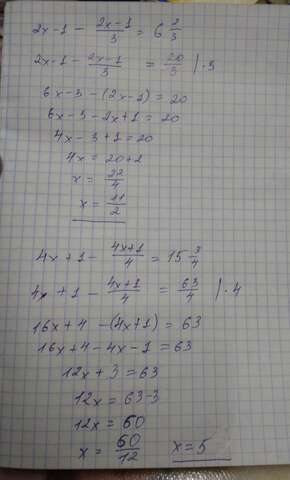 2x-1 - \frac{2x-1}{3} = 6\frac{2}{3}
2x-1 - \frac{2x-1}{3} = \frac{20}{3} / · 3
6x-3 - (2x-1) = 20
6x-3-2x+1 = 20
4x-3+1 = 20
4x = 20+2
x = \frac{22}{4}
x = \frac{11}{2}
4x+1 - \frac{4x+1}{4} = 15\frac{3}{4}
4x+1 - \frac{4x+1}{4} = \frac{63}{4} / · 4
16x+4 - (4x+1) = 63
16x+4-4x-1 = 63
12x+3 = 63
12x = 63-3
12x = 60
x = \frac{60}{12} x = 5